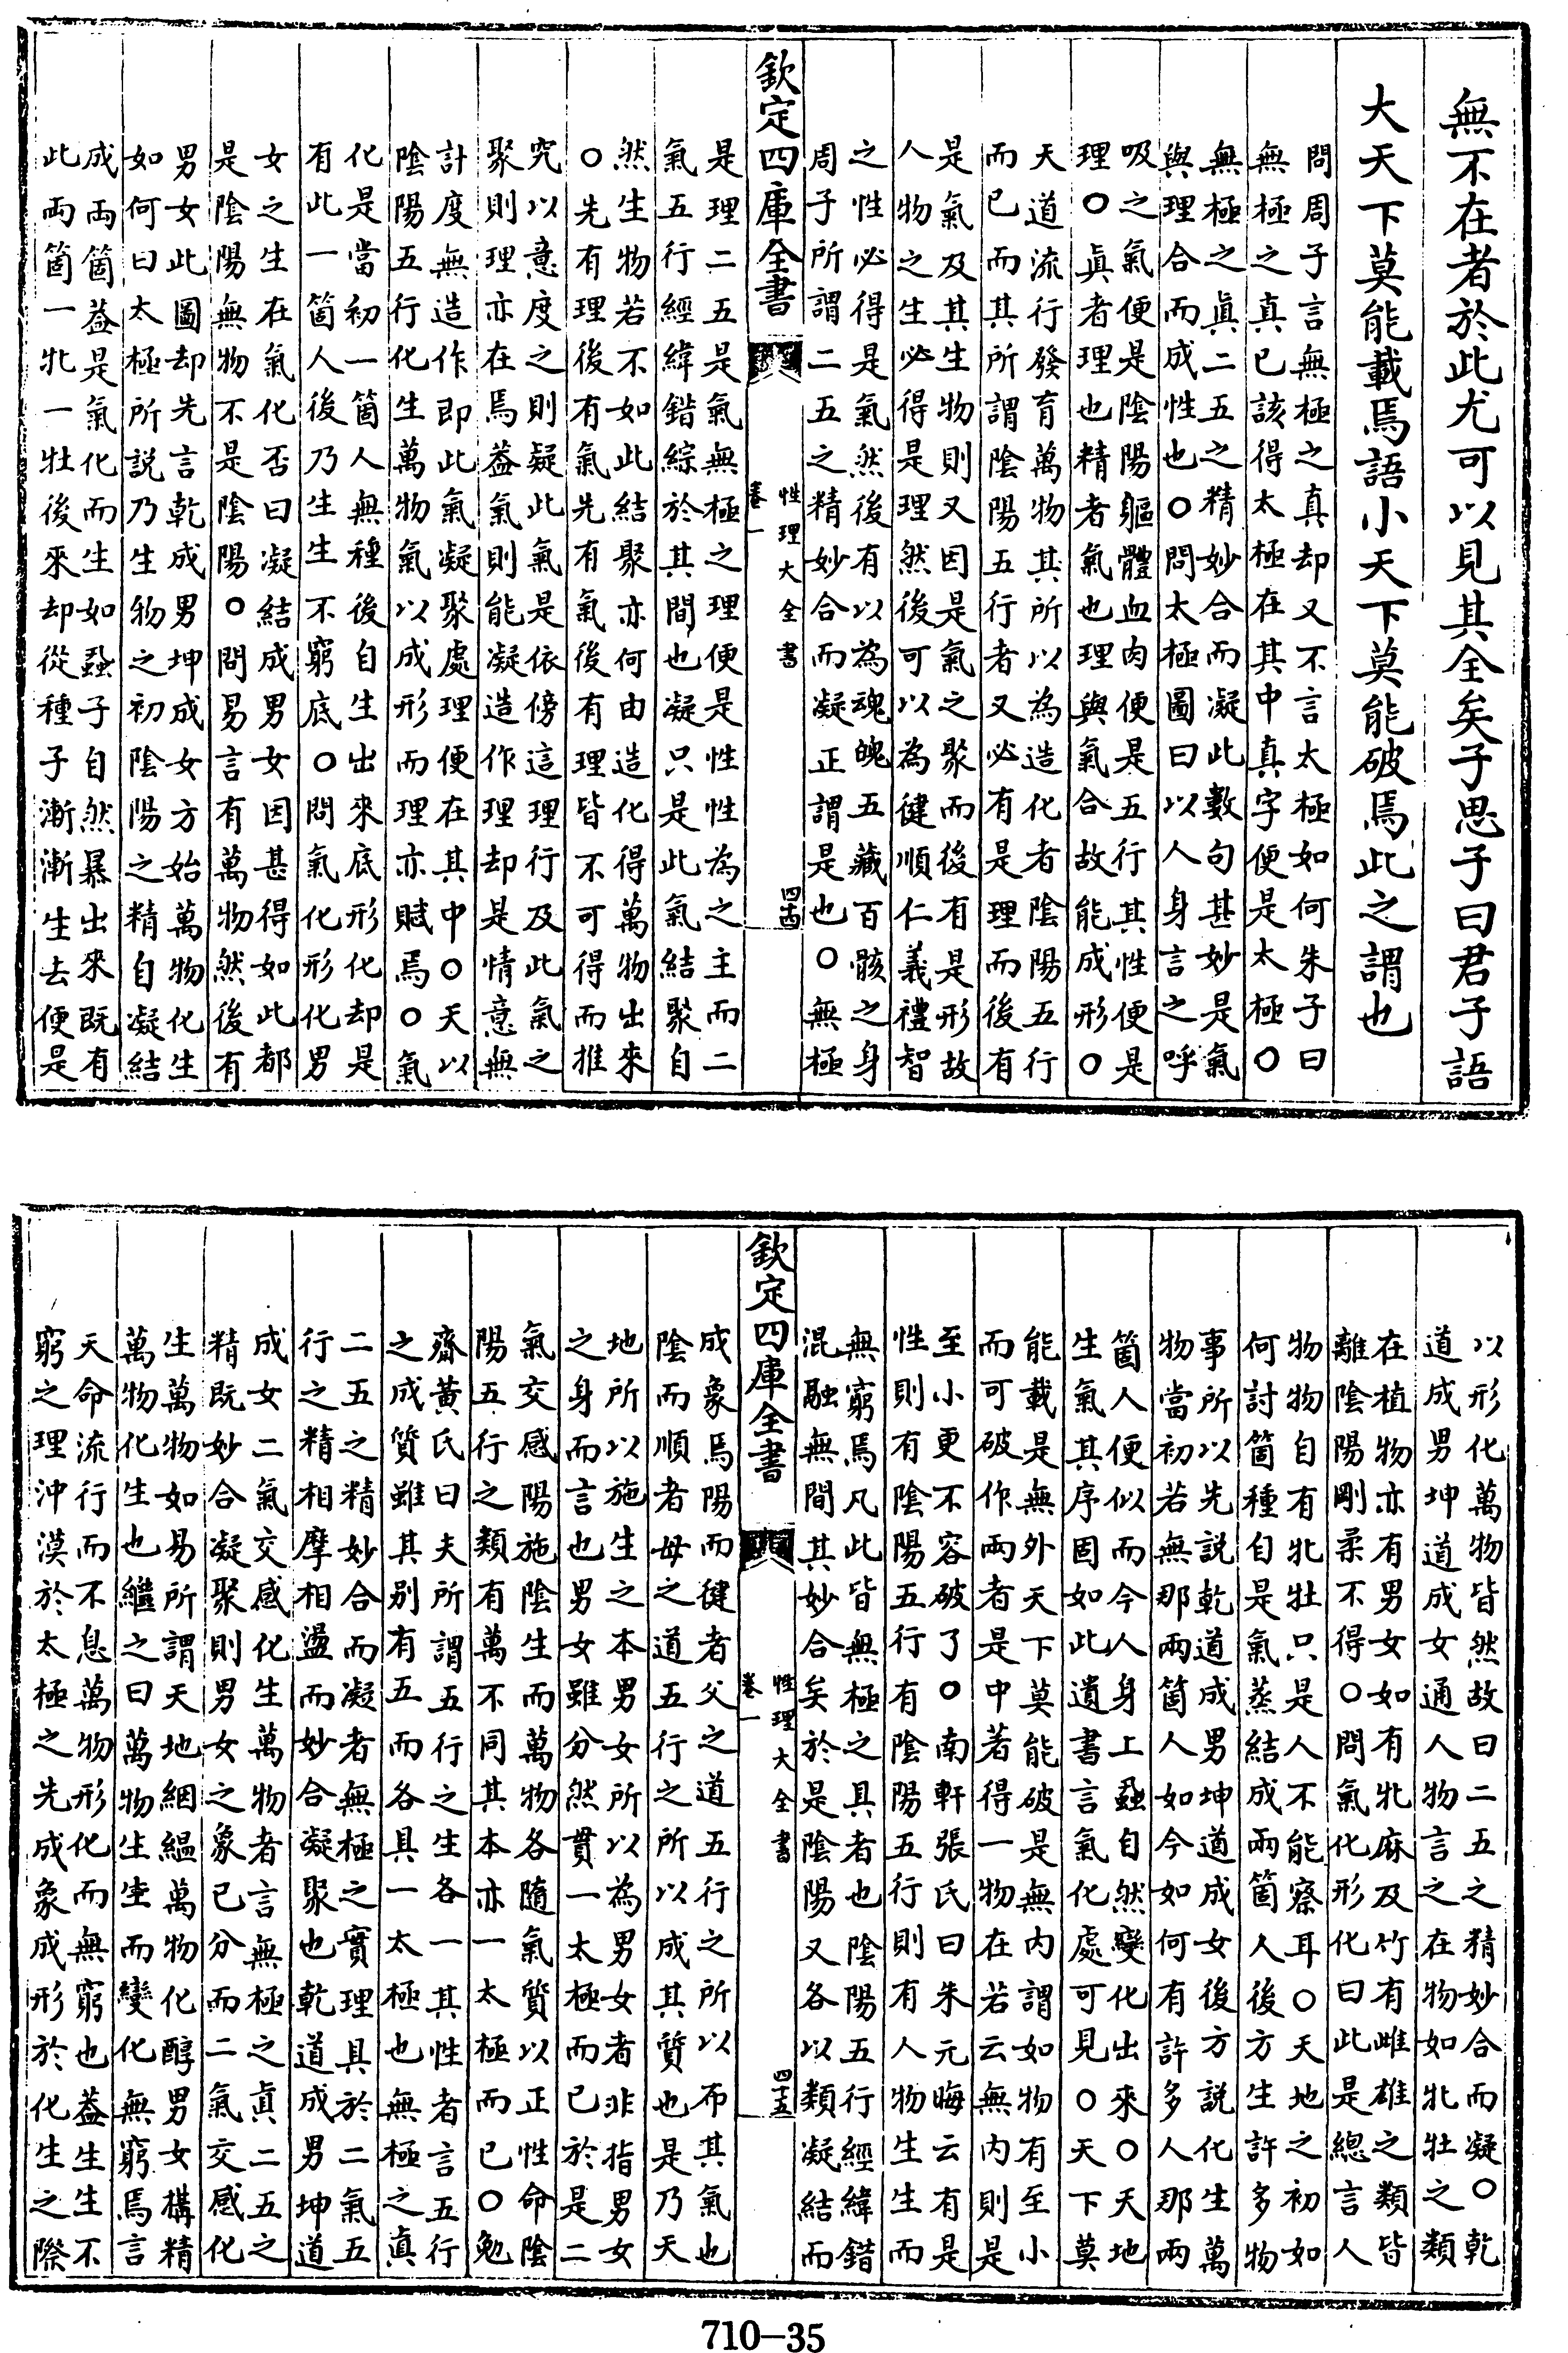 無不在者於此尤可以見其全矣子思子曰君子語
大天下莫能載焉語小天下莫能破焉此之謂也
問周子言無極之真却又不言太極如何朱子曰
無極之真已該得太極在其中真字便是太極○
無極之真二五之精妙合而凝此數句甚妙是氣
與理合而成性也○問太極圖曰以人身言之呼
吸之氣便是陰陽軀體血肉便是五行其性便是
理○真者理也精者氣也理與氣合故能成形○
天道流行發育萬物其所以為造化者陰陽五行
而已而其所謂陰陽五行者又必有是理而後有
是氣及其生物則又因是氣之聚而後有是形故
人物之生必得是理然後可以為健順仁義禮智
之性必得是氣然後有以為魂魄五藏百骸之身
周子所謂二五之精妙合而凝正謂是也○無極
欽定四庫全書
性理大全書
卷一
四十四
是理二五是氣無極之理便是性性為之主而二
氣五行經緯錯綜於其間也凝只是此氣結聚自
然生物若不如此結聚亦何由造化得萬物出來
○先有理後有氣先有氣後有理皆不可得而推
究以意度之則疑此氣是依傍這理行及此氣之
聚則理亦在焉蓋氣則能凝造作理却是情意無
計度無造作即此氣凝聚處理便在其中○天以
陰陽五行化生萬物氣以成形而理亦賦焉○氣
化是當初一箇人無種後自生出來底形化却是
有此一箇人後乃生生不窮底○問氣化形化男
女之生在氣化否曰凝結成男女因甚得如此都
是陰陽無物不是陰陽○問易言有萬物然後有
男女此圖却先言乾成男坤成女方始萬物化生
如何曰太極所説乃生物之初陰陽之精自凝結
成兩箇蓋是氣化而生如蝨子自然暴出來既有
此兩箇一牝一牡後來却從種子漸漸生去便是
以形化萬物皆然故曰二五之精妙合而凝○乾
道成男坤道成女通人物言之在物如牝牡之類
在植物亦有男女如有牝麻及竹有雌雄之類皆
離陰陽剛柔不得○問氣化形化曰此是總言人
物物自有牝牡只是人不能察耳○天地之初如
何討箇種自是氣蒸結成兩箇人後方生許多物
事所以先説乾道成男坤道成女後方説化生萬
物當初若無那兩箇人如今如何有許多人那兩
箇人便似而今人身上蝨自然變化出來○天地
生氣其序固如此遺書言氣化處可見○天下莫
能載是無外天下莫能破是無內謂如物有至小
而可破作兩者是中若得一物在若云無內則是
至小更不容破了○南軒張氏曰朱元晦云有是
性則有陰陽五行有陰陽五行則有人物生生而
無窮焉凡此皆無極之具者也陰陽五行經緯錯
混融無間其妙合矣於是陰陽又各以類凝結而
欽定四庫全書
性理大全書
卷一
四十五
成象焉陽而健者父之道五行之所以布其氣也
陰而順者母之道五行之所以成其質也是乃天
地所以施生之本男女所以為男女者非指男女
之身而言也男女雖分然貫一太極而已於是二
氣交感陽施陰生而萬物各隨氣質以正性命陰
陽五行之類有萬不同其本亦一太極而已○勉
齋黃氏曰夫所謂五行之生各一其性者言五行
之成質雖其別有五而各具一太極也無極之真
二五之精妙合而凝者無極之實理具於二氣五
行之精相摩相盪而妙合凝聚也乾道成男坤道
成女二氣交感化生萬物者言無極之真二五之
精既妙合凝聚則男女之象已分而二氣交感化
生萬物如易所謂天地絪緼萬物化醇男女構精
萬物化生也繼之曰萬物生生而變化無窮焉言
天命流行而不息萬物形化而無窮也蓋生生不
窮之理沖漠於太極之先成象成形於化生之際
710-35